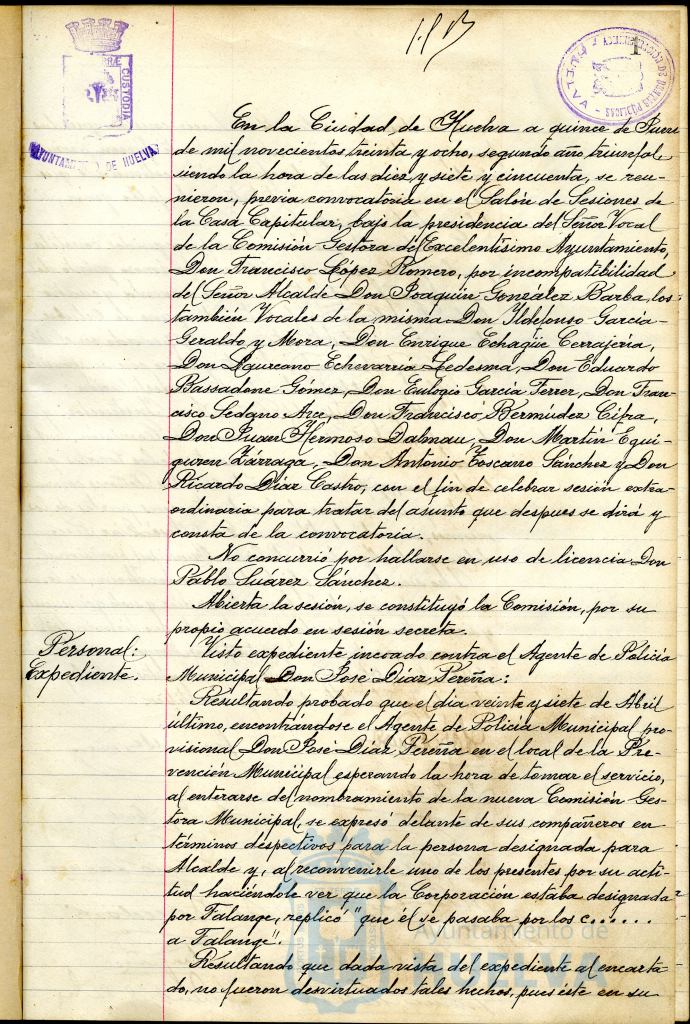 1
CUSTODIA
AYUNTAMIENTO DE HUELVA
En la Ciudad de Huelva a quince de
de mil novecientos treinta y ocho, segundo año triunfal,
siendo la hora de las diez y siete y cincuenta, se reu-
nieron, previa convocatoria en el Salón de Sesiones de
la Casa Capitular, bajo la presidencia del Señor Vocal
de la Comisión Gestora del Excelentísimo Ayuntamiento,
Don Francisco López Romero, por incompatibilidad
del Señor Alcalde Don Joaquín González Barba, los
también Vocales de la misma Don Ildefonso García-
Geraldo y Mora, Don Enrique Echagüe Cerrajería,
Don Laureano Echevarría Ledesma, Don Eduardo
Bassadone Gómez, Don Eulogio García Ferrer, Don Fran-
cisco Sedano Arce, Don Francisco Bermúdez Cifra,
Don Juan Hermoso Dalmau, Don Martín Egui-
guren Zárraga, Don Antonio Toscano Sánchez y Don
Ricardo Díaz Castro, con el fin de celebrar sesión extra-
ordinaria para tratar del asunto que despues se dirá y
consta de la convocatoria.
No concurrió por hallarse en uso de licencia Don
Pablo Suárez Sánchez.
Abierta la sesión, se constituyó la Comisión, por su
propio acuerdo en sesión secreta.
Personal:
Expediente.
Visto expediente incoado contra el Agente de Policía
Municipal Don José Díaz Pereña:
Resultando probado que el dia veinte y siete de Abril
último, encontrándose el Agente de Policía Municipal pro-
visional Don José Díaz Pereña en el local de la Pre-
vención Municipal esperando la hora de tomar el servicio,
al enterarse del nombramiento de la nueva Comisión Ges-
tora Municipal, se expresó delante de sus compañeros en
términos despectivos para la persona designada para
Alcalde y, al reconvenirle uno de los presentes por su acti-
tud haciéndole ver que la Corporación estaba designada
por Falange, replicó "que él se pasaba por los c......
a Falange".
Resultando que dada vista del expediente al encarta-
do, no fueron desvirtuados tales hechos, pues éste en su
Ayuntamiento de
HUELVA